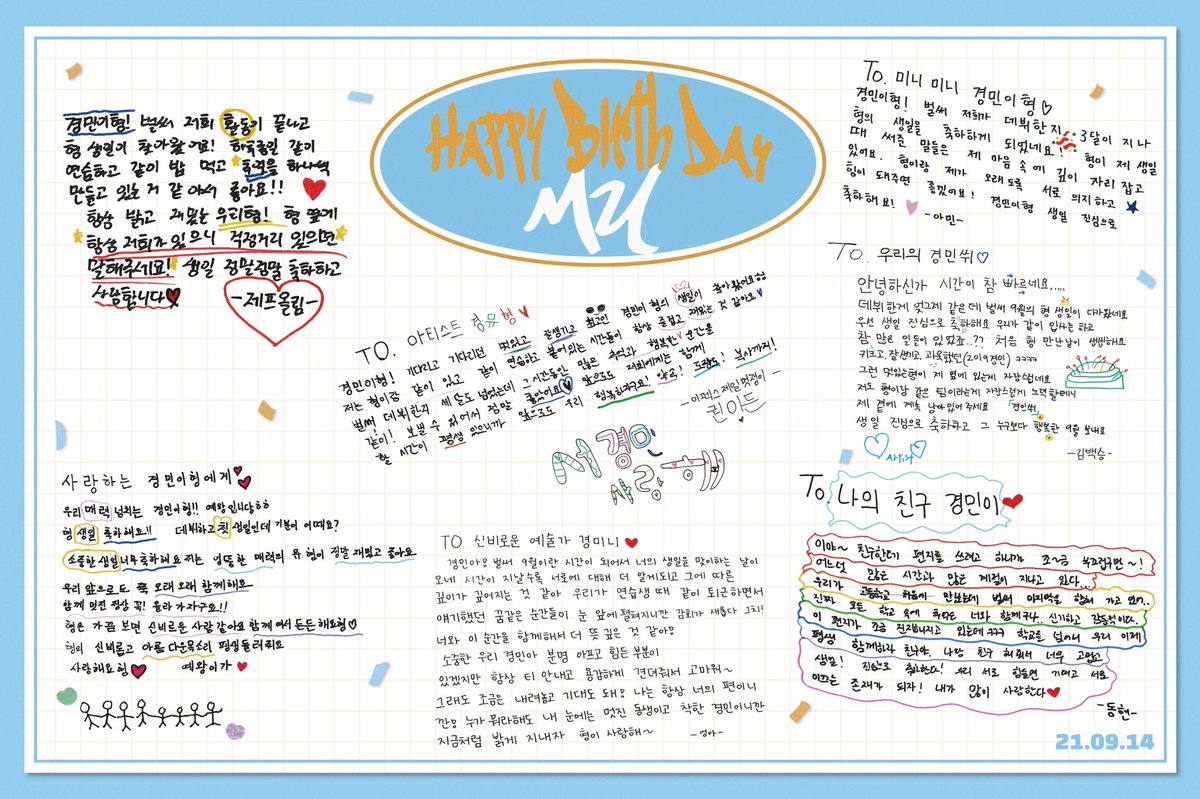 HAPPY BIRTH DAY
MU
경민이형! 벌써 저희 활동이 끝나고
형 생일이 찾아왔어요! 하루종일 같이
연습하고 같이 밥 먹고 추억을 하나씩
만들고 있는 거 같아서 좋아요!!
항상 밝고 재밌는 우리형! 형 옆에
항상 저희가 있으니 걱정거리 있으면
말해주세요! 생일 정말정말 축하하고
사랑합니다
-제프올림-
TO. 아티스트 금뮤형
경민이형! 기다리고 기다리던 멋있고 잘생기고 최고인 경민이 형의 생일이 찾아왔어요
저는 형이랑 같이 있고 같이 연습하고 붙어있는 시간들이 항상 즐겁고 재밌는 것 같아요
벌써 데뷔한지 세 달도 넘었는데 그 시간동안 많은 추억과 행복한 순간을
같이! 보낼 수 있어서 정말 좋았어요 앞으로도 저희에게는 함께
할 시간이 평생 있으니까 앞으로도 우리 행복하자구요! 약속! 도장! 복사까지!
-이펙스 제일 멋쟁이-
퀸 아든
서경민
사랑해
To. 미니 미니 경민이형♡
경민이형! 벌써 저희가 데뷔한지 3달이 지나
형의 생일을 축하하게 되었네요! 형이 제 생일
때 써준 말들은 제 마음 속에 깊이 자리 잡고
있어요. 형이랑 제가 오래도록 서로 의지하고
힘이 돼주면 좋겠어요! 경민이형 생일 진심으로
축하해요!
-아민-
TO. 우리의 경민쒸♡
안녕하신가 시간이 참 빠르네요.....
데뷔한게 엊그제 같은데 벌써 9월의 형 생일이 다가왔네요
우선 생일 진심으로 축하해요 우리가 같이 입사는 하고
참 많은 일들이 있었죠..?? 처음 형 만난날이 생생해요
키크고, 잘생기고, 과묵했던 (2019경민) ㅋㅋㅋㅋ
그런 멋있는형이 제 옆에 있는게 자랑스럽네요
저도 형이랑 같은 팀이라는게 자랑스럽게 노력할테니
제 곁에 계속 남아있어주세요 경민쒸
생일 진심으로 축하하고 그 누구보다 행복한 9월 보내요
Artist
-김백승-
사랑하는 경민이형에게
우리 매력 넘치는 경민이형!! 예왕입니당ㅎㅎ
형 생일 축하해요!! 데뷔하고 첫 생일인데 기분이 어때요?
소중한 생일 너무 축하해요 저는 엉뚱한 매력의 뮤 형이 정말 재밌고 좋아요
우리 앞으로도 쭉 오래오래 함께해요
함께 멋진 정상 꼭! 올라가자구요!!
형은 가끔 보면 신비로운 사람 같아요 함께여서 든든해요형♡
형의 신비롭고 아름다운목소리 평생들려줘요
사랑해요형 예왕이가
TO 신비로운 예술가 경미니
경민아! 벌써 9월이란 시간이 되어서 너의 생일을 맞이하는 날이
오네 시간이 지날수록 서로에 대해 더 알게되고 그에 따른
깊이가 깊어지는 것 같아 우리가 연습생 때 같이 퇴근하면서
얘기했던 꿈같은 순간들이 눈 앞에 펼쳐지니깐 감회가 새롭다 그치!
너와 이 순간을 함께해서 더 뜻 깊은 것 같아!
소중한 우리 경민아 분명 아프고 힘든 부분이
있겠지만 항상 티 안내고 용감하게 견뎌줘서 고마워~
그래도 조금은 내려놓고 기대도 돼! 나는 항상 너의 편이니
깐! 누가 뭐라해도 내 눈에는 멋진 동생이고 착한 경민이니깐
지금처럼 밝게 지내자 형이 사랑해~
To. 나의 친구 경민이
이야~ 친구한테 편지를 쓰려고 하니깐 조~금 쑥스럽구먼~!
어느덧 많은 시간과 많은 계절이 지나고 있다..
우리가 고등학교 처음에 만났는데 벌써 마지막을 향해 가고 있어..
진짜 모든 학교 속에 하루도 너와 함께구나.. 신기하고 감동적이다.
이 편지가 조금 진지해지고 있는데ㅋㅋㅋ 학교를 넘어서 우리 이제
평생 함께하자 친구야. 나랑 친구 해줘서 너무 고맙고
생일! 진심으로 축하한다! 우리 서로 힘들면 기대고 서로
이끄는 존재가 되자! 내가 많이 사랑한다
-동현-
21.09.14